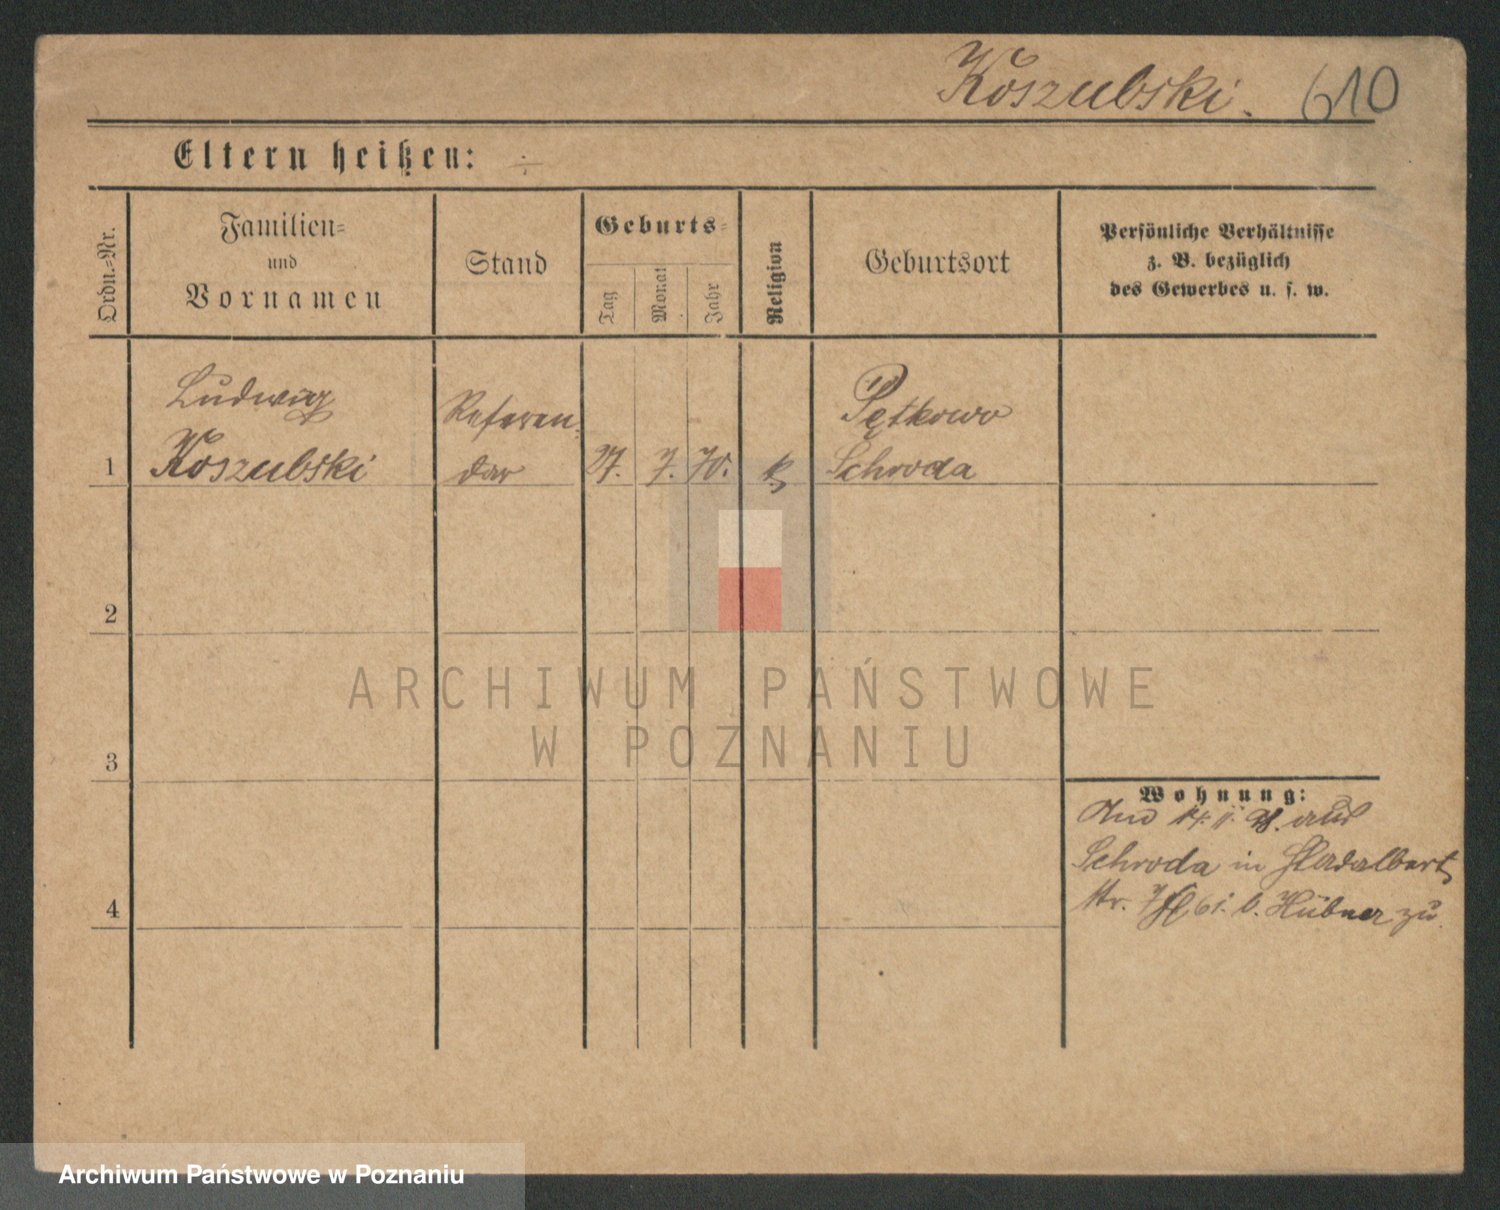 Koszubski. 610
Eltern heißen: ÷
Ordn.-Nr.
Familien-
und
Vornamen
Stand
Geburts-
Tag
Monat
Jahr
Religion
Geburtsort
Persönliche Verhältnisse
z. B. bezüglich
des Gewerbes u. s. w.
Ludwig
Koszubski
Referen-
dar
1
27. 7. 70.
k.
Pętkowo
Schroda
2
3
4
Wohnung:
aus
Schroda in
Str. b. Hübner zu
ARCHIWUM PAŃSTWOWE
W POZNANIU
Archiwum Państwowe w Poznaniu